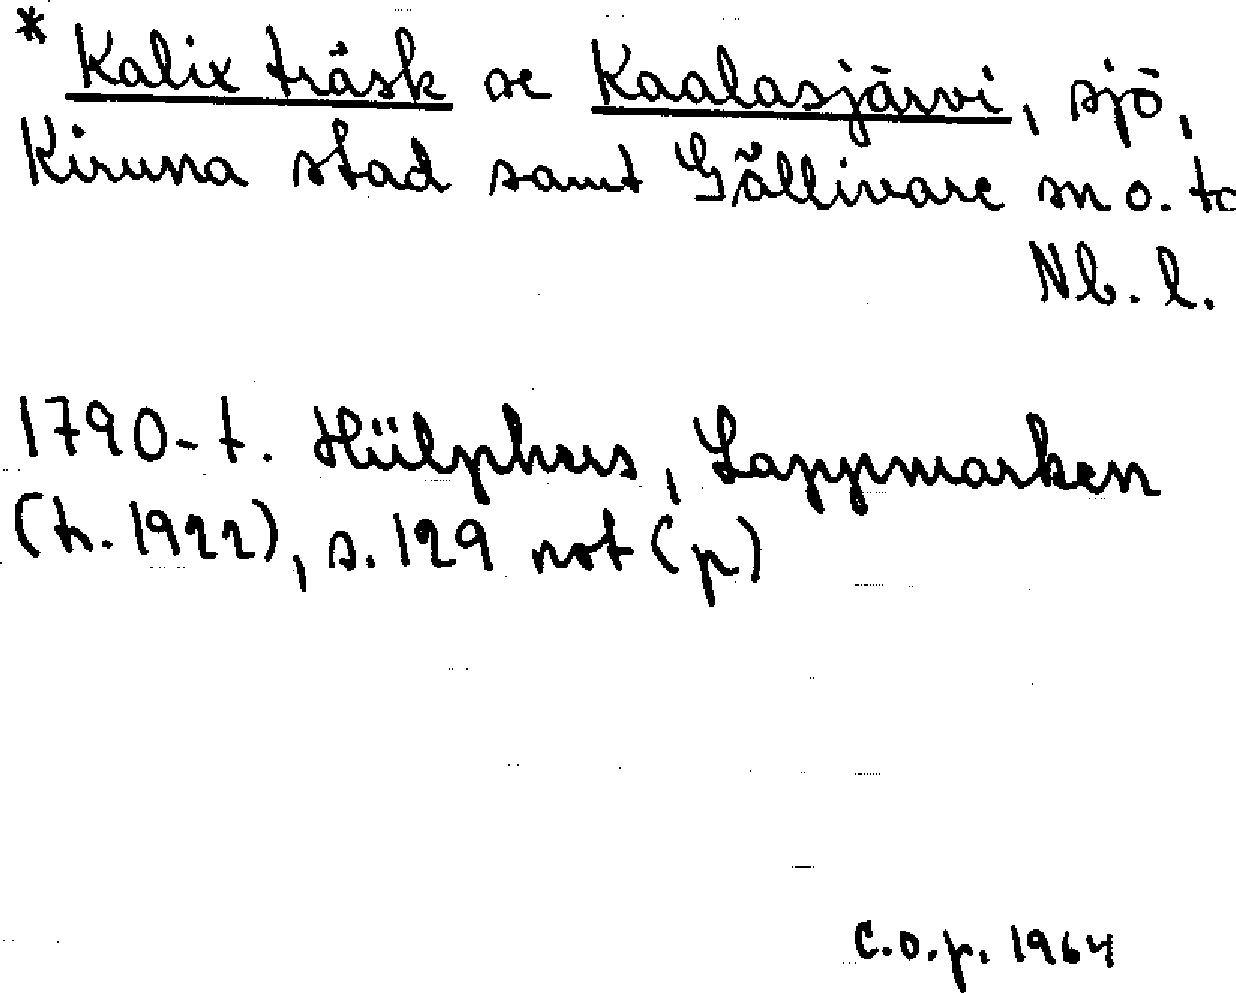 * Kalix träsk se Kaalasjärvi, sjö,
Kiruna stad samt Gällivare sn o. td
Nb. l.
1790-t. Hülphers, Lappmarken
(h. 1922), s. 129 not (p)
C.O.p. 1964